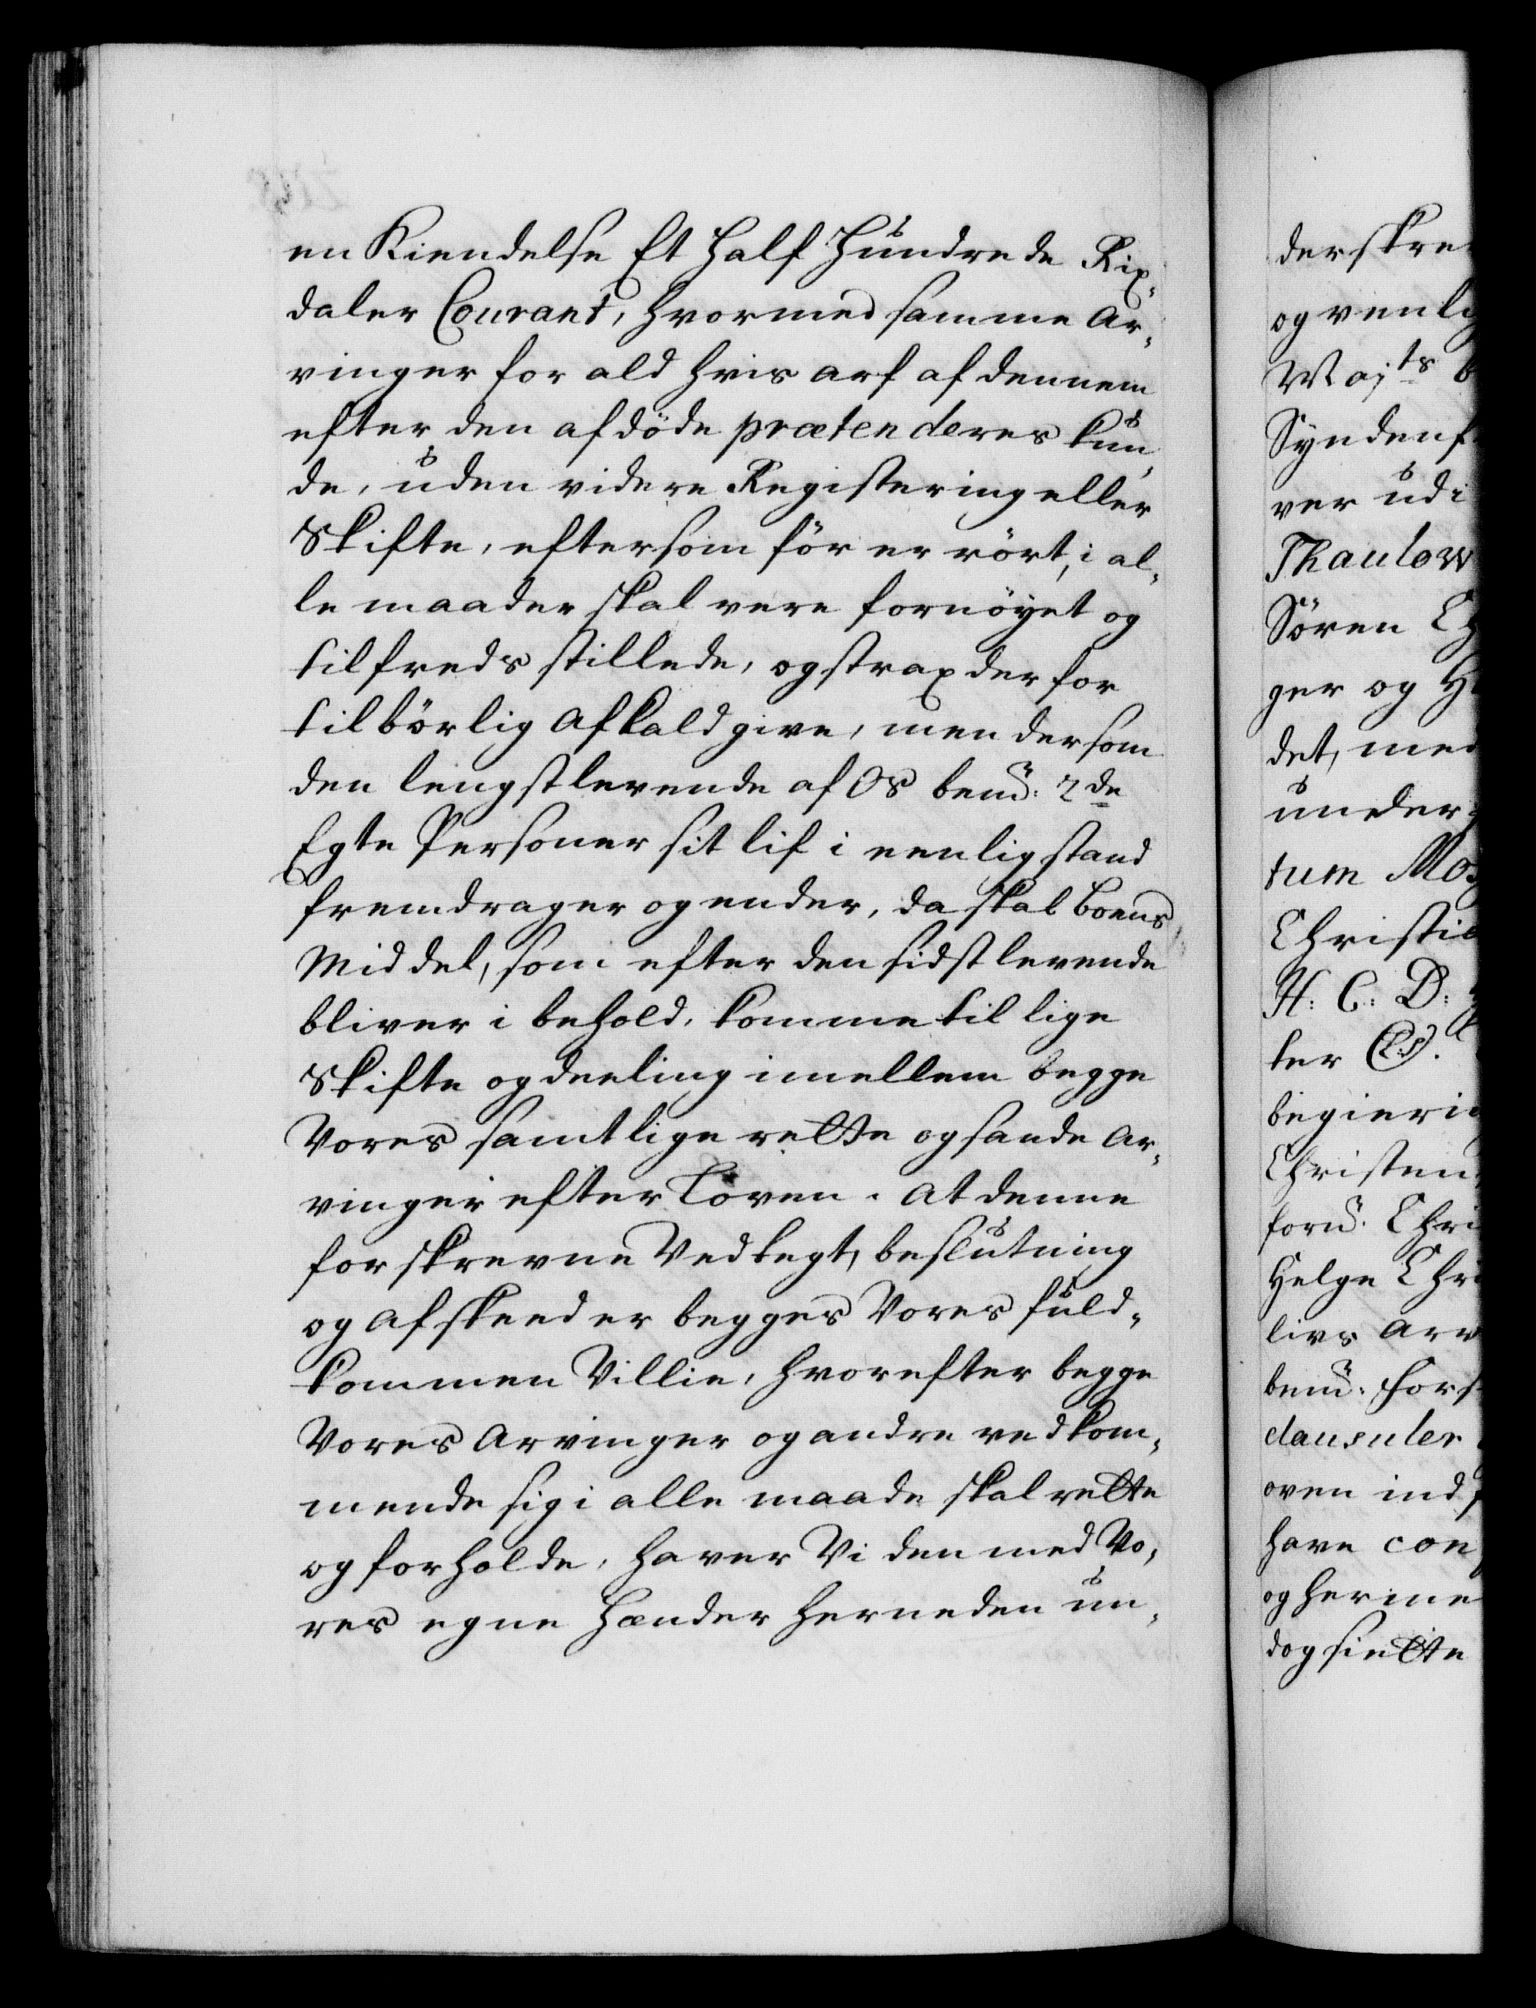 en Kiendelse Et half Hundrede Rix-
daler Courant, hvormed samme Ar-
vinger for ald hvis arf af dennem
efter den afdöde prætenderes kun-
de, uden videre Registering eller
Skifte, eftersom för er rört, i al-
le maader skal vere fornöyet og
tilfreds stillede, og strax der for
tilbörlig afkald give, men dersom
den lengstlevende af Os bem: 2de
Egte Personer sit lif i eenlig stand
fremdrager og ender, da skal boens
Middel, som efter den sidst levende
bliver i behold, komme til lige
Skifte og deeling imellem begge
Vores samtlige rette og sande Ar-
vinger efter Loven. At denne
forskrevne Vedtegt, beslutning
og afskeed er begges Vores fuld-
kommen Villie, hvorefter begge
Vores Arvinger og andre vedkom-
mende sig i alle maade skal rette
og forholde, haver Vi den med Vo-
res egne Hænder herneden un-
derskre
og venli
Maj:ts
Syndenf
ver udi
Thaulow
Sören Ch
ger og H
det, med
under
tum Mos
Christia
H: C: D:
ter (L.S).
begierin
Christen
forn: Chri
Helge Chri
livs Arv
bem: Fors
clausuler
oven ind
have con
og herme
dog siette